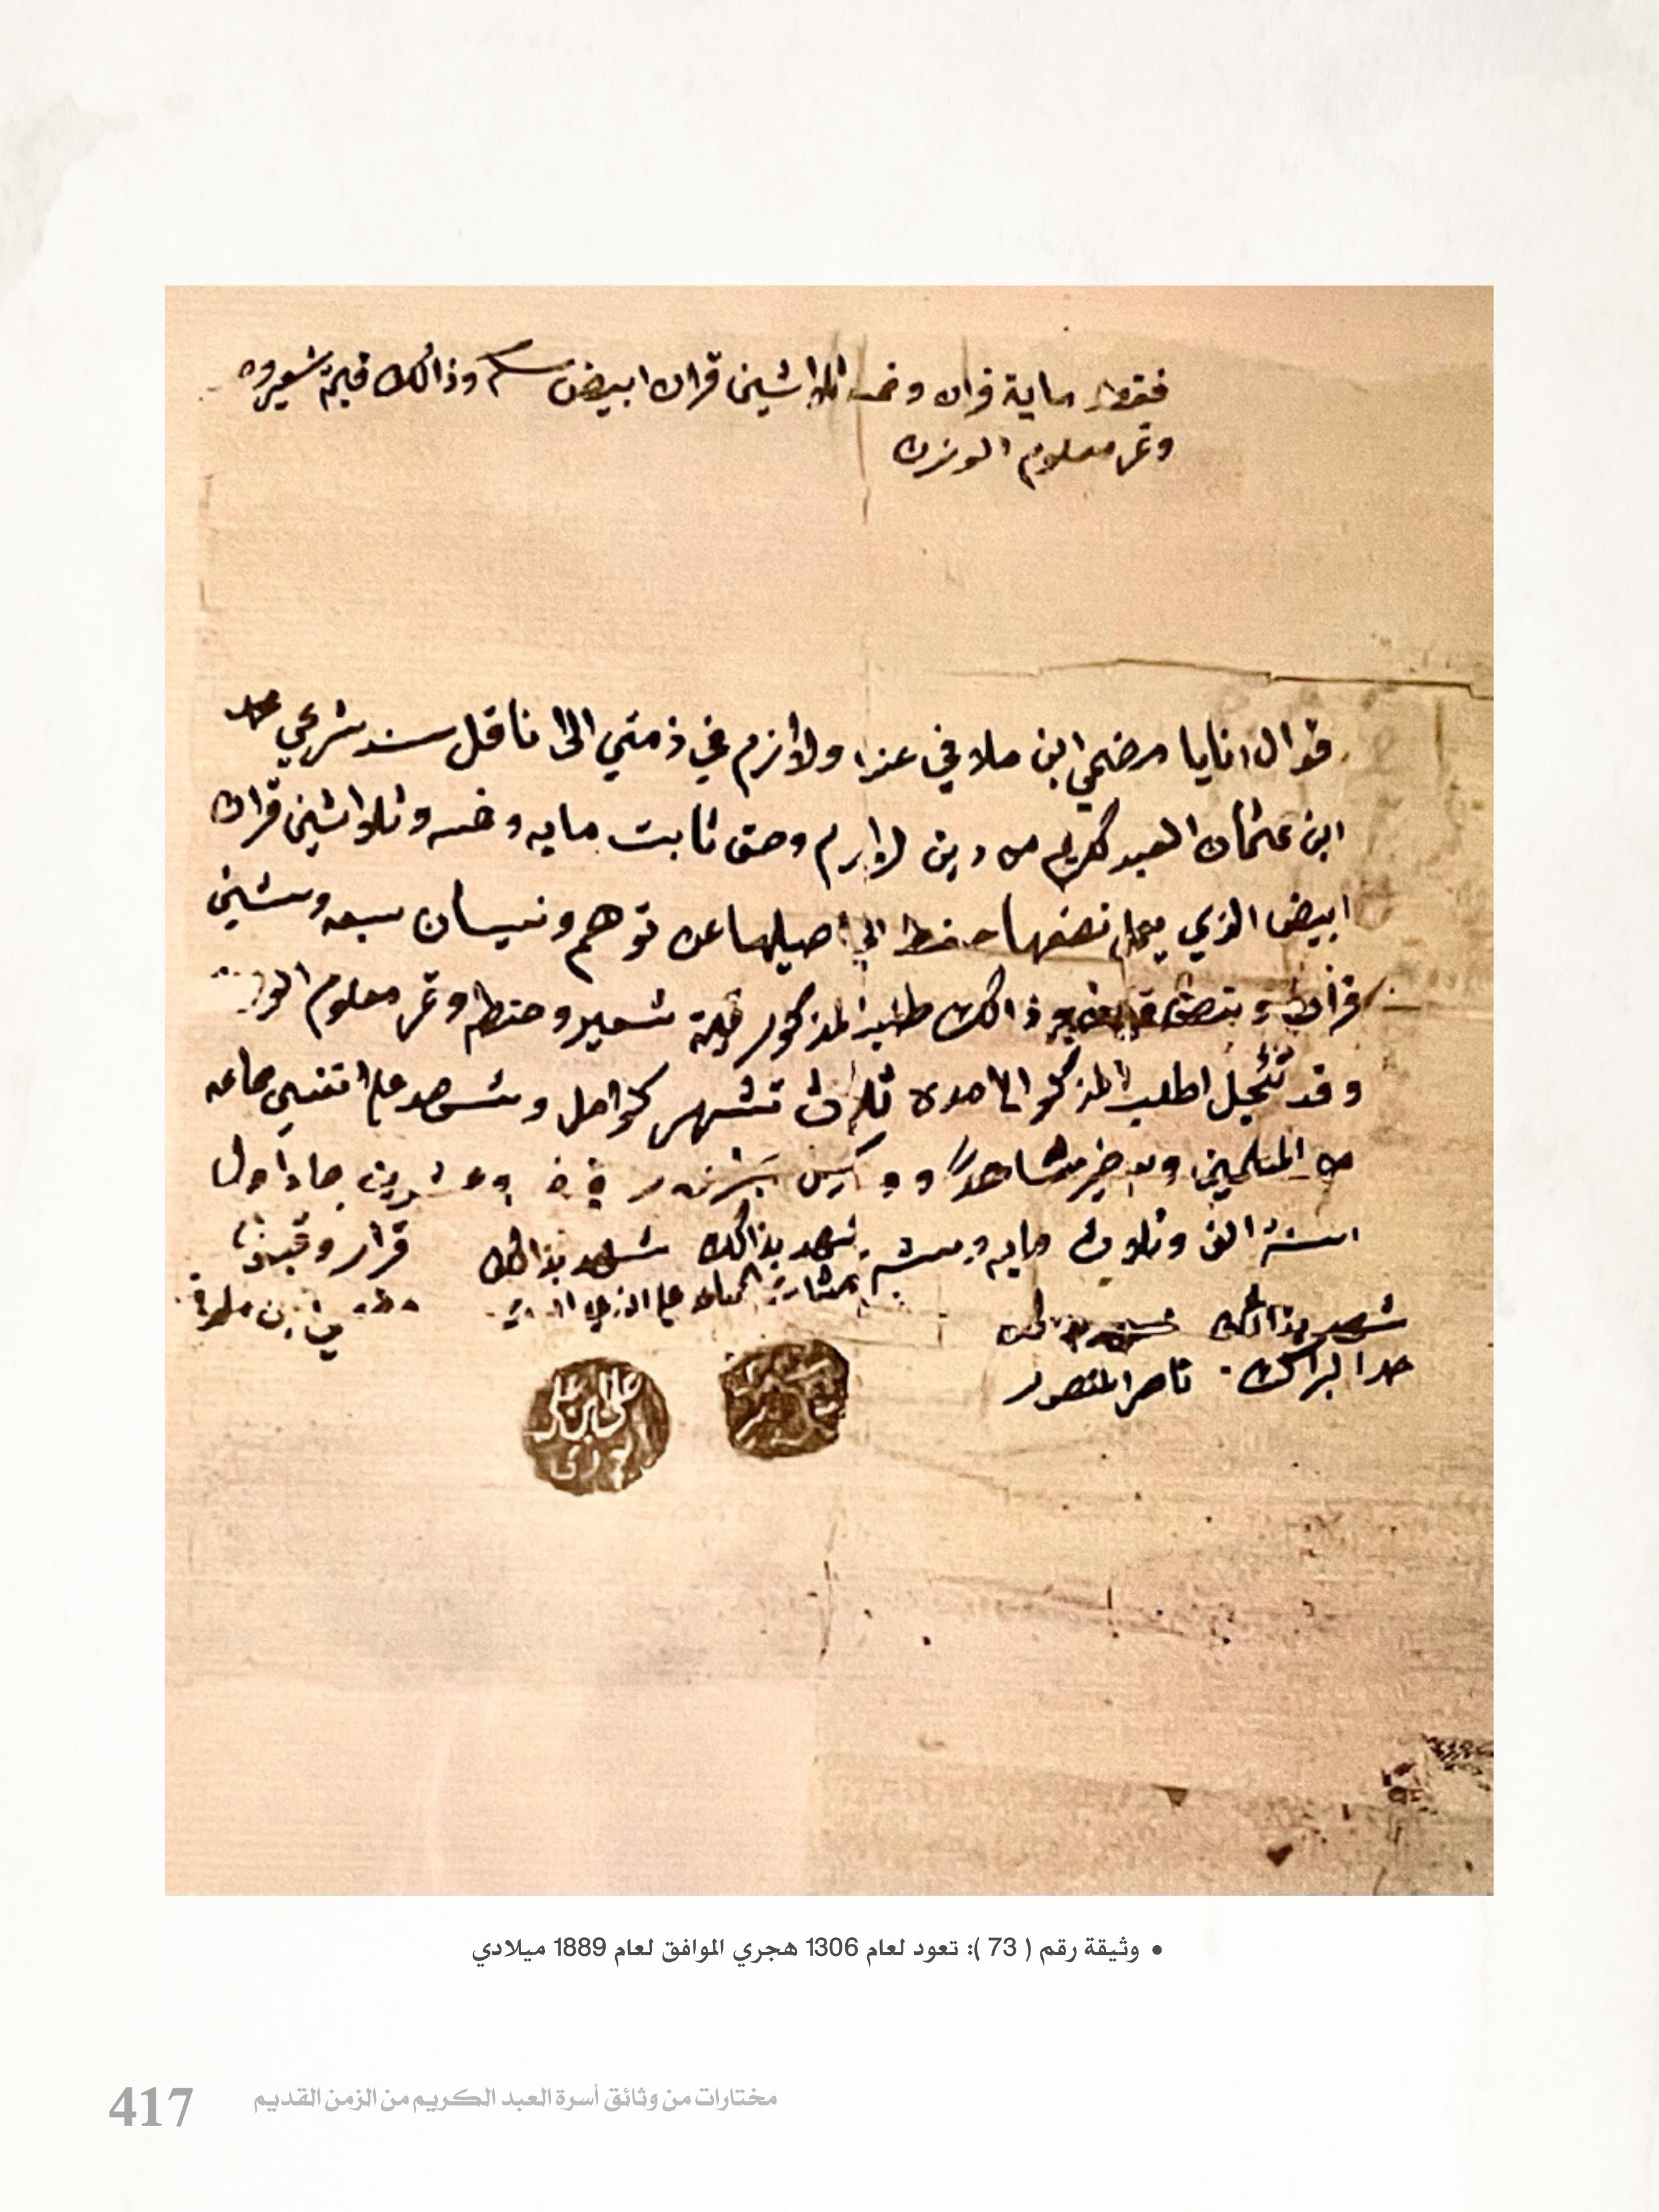 فقط ماية قران وخمسه اثلواشين قران ابيض وذالك قيمة شعير و
وتمر معلوم الوزن
قوال انايا مرضي ابن ملافي عنزا ولازم في ذمتي الى ناقل سند شرعي محمد
ابن عثمان العبد كريم من دين لوازم وحق ثابت مايه وخمسه وثلواثين قران
ابيض الذي نصفها حفظ الى اصيلها عن توهم ونسيان سبعه وستين
قران ونصف وذالك طلب المذكور قيمة شعير وحنطه وتمر معلوم
وقد تئجل اطلب المذكور الا مده ثلاث تشهر كوامل وشهد علا نفسي جماعه
من المسلمين في وعشرين جمادا ول
سنة الف وثلاث مايه وسته
شهد بذالك شهد بذالك قرار وقبضا
شهد بذالك
حمد البراك ناصر المنصور
علي ابن علي
• وثيقة رقم ( 73 ): تعود لعام 1306 هجري الموافق لعام 1889 ميلادي
مختارات من وثائق أسرة العبد الكريم من الزمن القديم 417